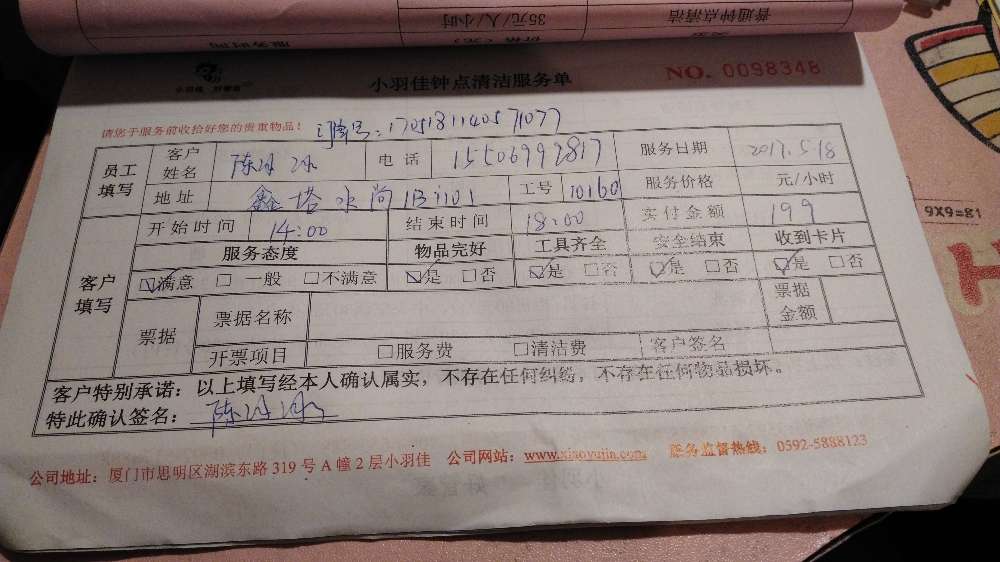 普通钟点清洁
35元/人/小时
小羽佳 好管家
小羽佳钟点清洁服务单
NO. 0098348
请您于服务前收拾好您的贵重物品!
订单号:1705181140571077
员工填写 客户姓名 陈冰冰 电话 15506999817 服务日期 2017.5.18
地址 鑫塔水尚1B1101 工号 10160 服务价格 元/小时
客户填写 开始时间 14:00 结束时间 18:00 实付金额 199
服务态度 物品完好 工具齐全 安全结束 收到卡片
☑满意 □一般 □不满意 ☑是 □否 ☑是 □否 ☑是 □否 ☑是 □否
票据 票据名称 票据金额
开票项目 □服务费 □清洁费 客户签名
客户特别承诺:以上填写经本人确认属实,不存在任何纠纷,不存在任何物品损坏。
特此确认签名:陈冰冰
公司地址:厦门市思明区湖滨东路 319 号 A 幢 2 层小羽佳 公司网站:www.xiaoyujia.com 服务监督热线:0592-5888123
9X9=81